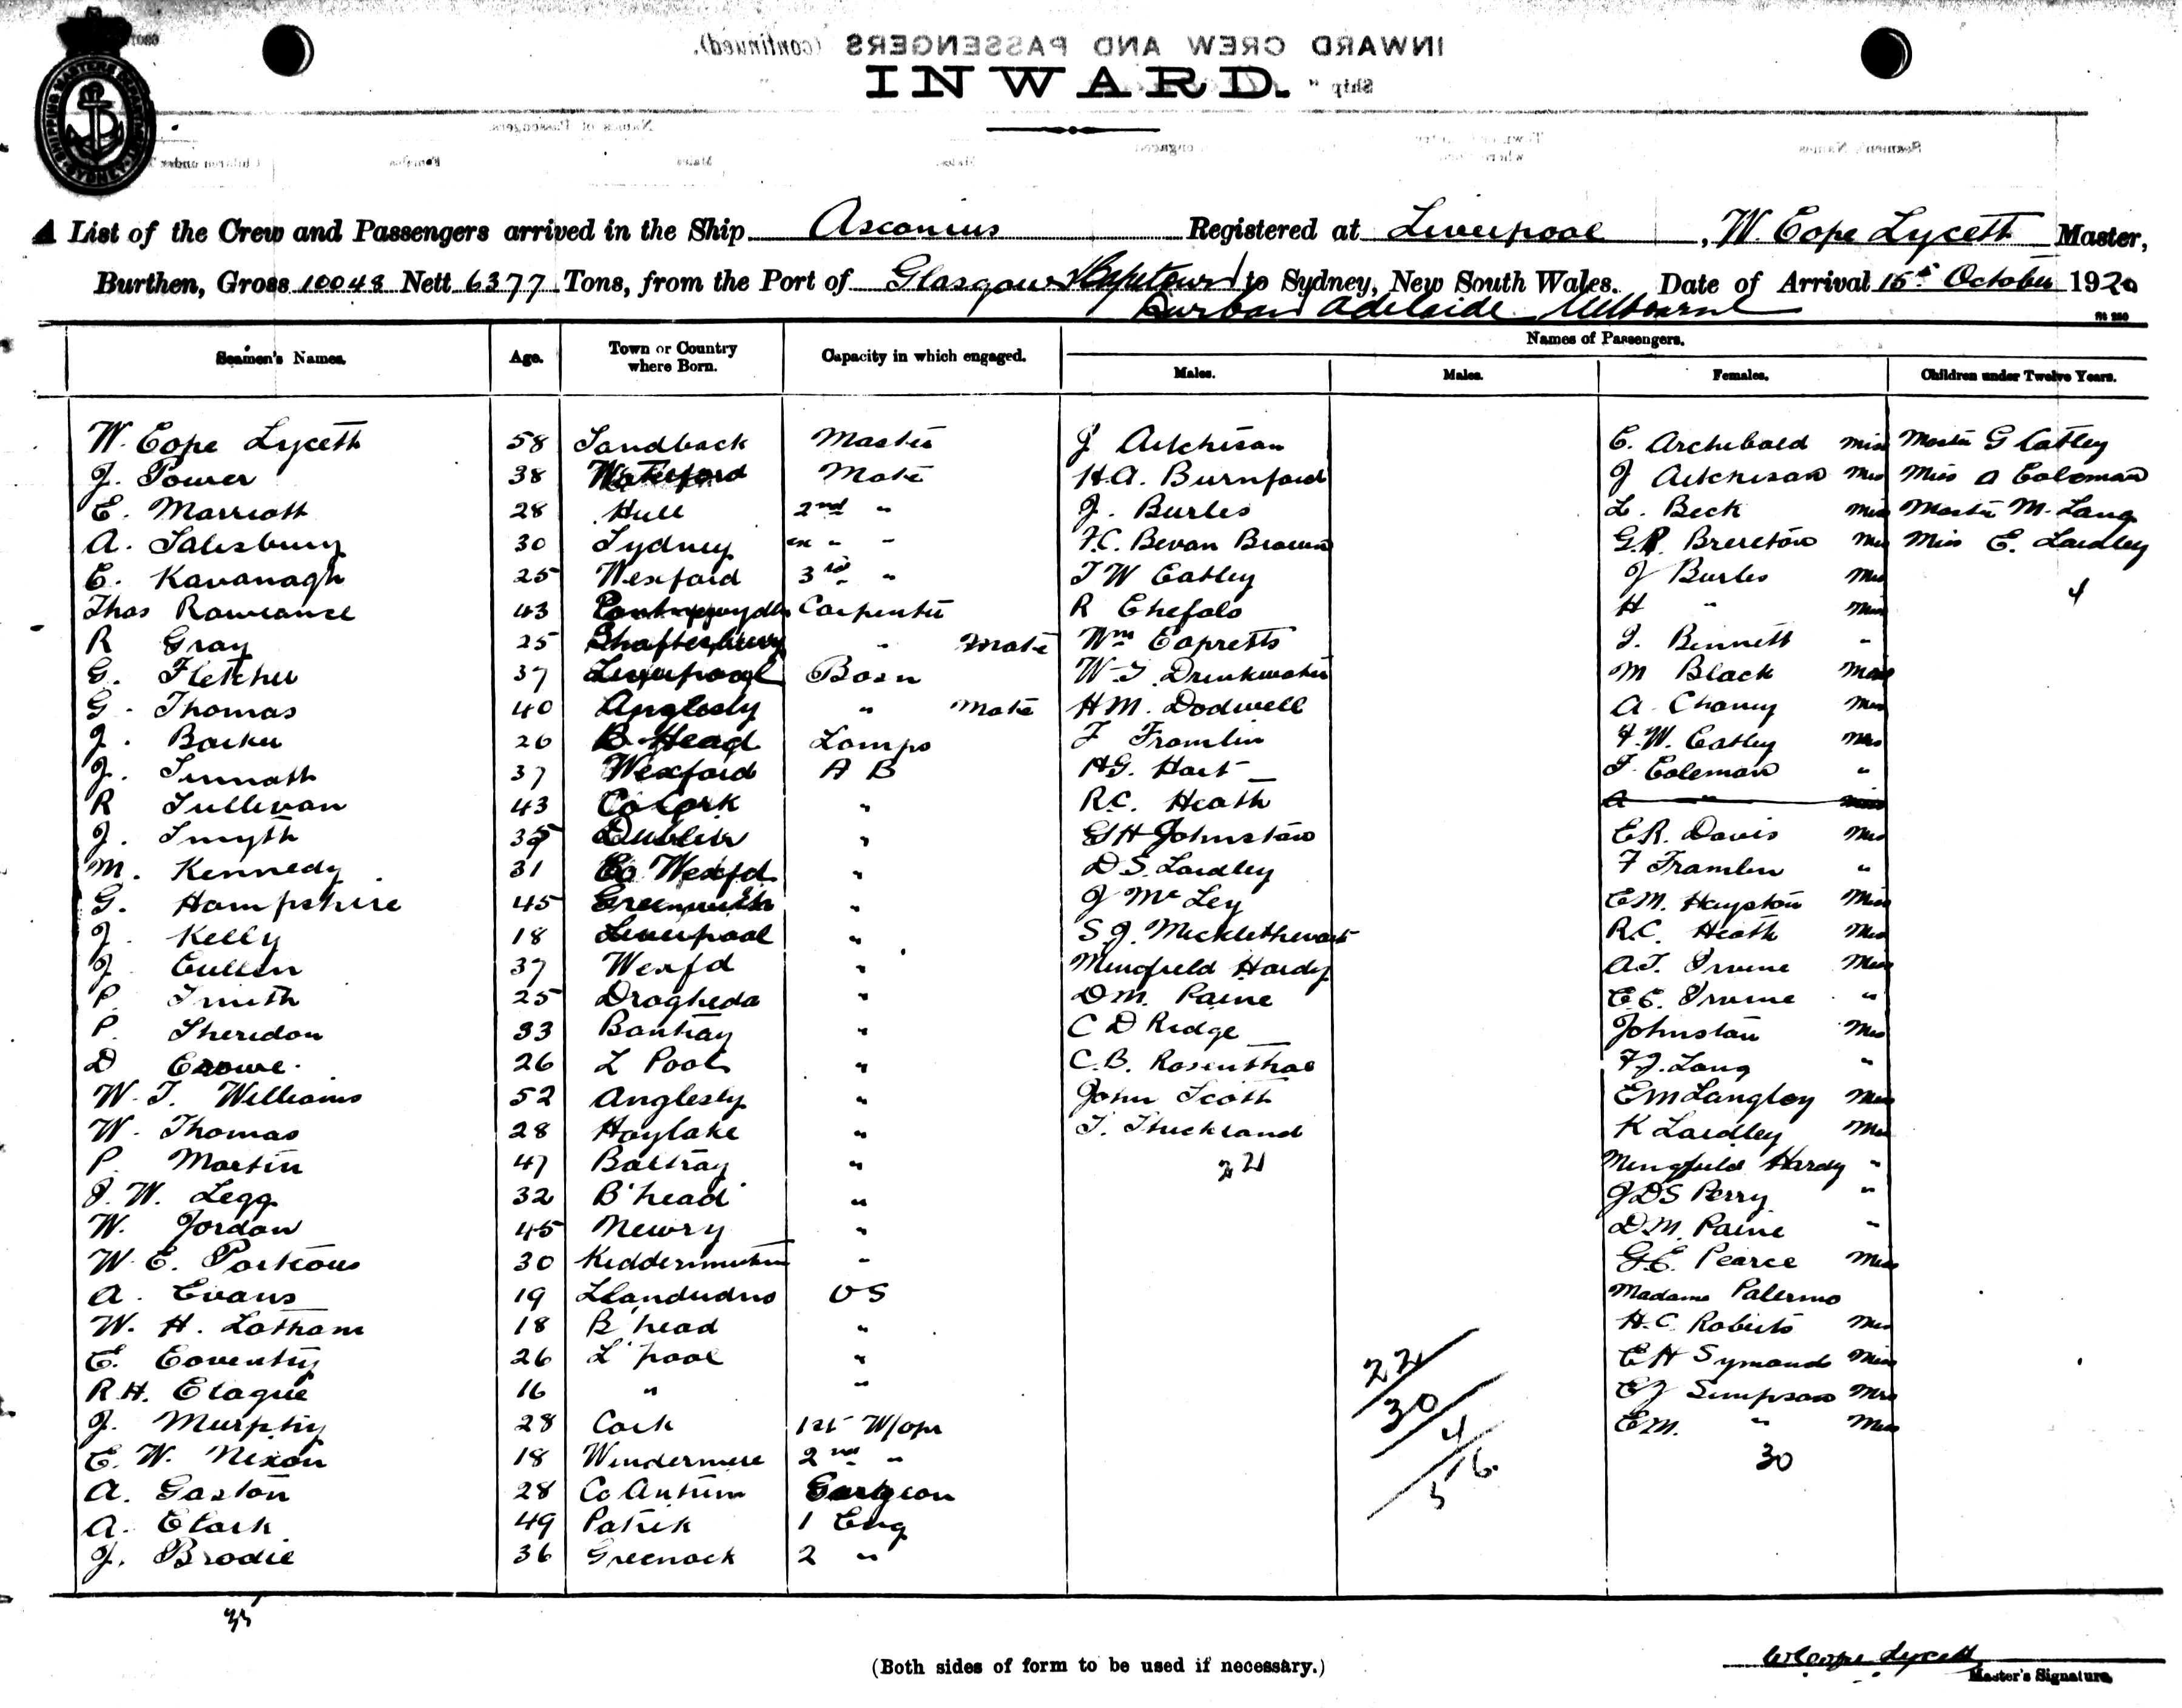 INWARD CREW AND PASSENGERS (continued).
INWARD.
Ship "
Names of Passengers.
Seamen's Names
A List of the Crew and Passengers arrived in the Ship Ascanius Registered at Liverpool, W. Cope Lycett Master,
Burthen, Gross 10048 Nett 6377 Tons, from the Port of Glasgow Capetown to Sydney, New South Wales. Date of Arrival 15th October 1920
Durban Adelaide Melbourne
Seamen's Names. Age. Town or Country where Born. Capacity in which engaged. Names of Passengers.
Males. Males. Females. Children under Twelve Years.
W. Cope Lycett 58 Sandback Master J Aitchison E. Archibald Miss Master G Catley
J. Power 38 Waterford Mate H.A. Burnford J Aitchison Mrs Miss A Coleman
E. Marriott 28 Hull 2nd " J. Burles L. Beck Miss Master M. Lang
A. Salisbury 30 Sydney ex " " F.C. Bevan Brown G.R. Brereton Mrs Miss E. Laidley
E. Kavanagh 25 Wexford 3rd " T W Catley J Burles Mrs 4
Thos Rowrance 43 Carpenter R Chefalo H " Miss
R Gray 25 Shaftesbury " Mate Wm Copretts J. Bennett "
G. Fletcher 37 Liverpool Bosn W.J. Drinkwater M Black
G. Thomas 40 Anglesly " Mate H M. Dodwell A. Chaney
J. Barker 26 B. Head Lamps F Framlin F.W. Catley Mrs
J. Sinnott 37 Wexford A B H.G. Hart T. Coleman "
R Sullivan 43 Co Cork " R.C. Heath A "
J. Smyth 35 Dublin " G H Johnston E.R. Davis Mrs
M. Kennedy 31 Co Wexfd " D S. Laidley F Framlin "
G. Hampshire 45 Greenwich " J McLey E.M. Hayston Miss
J. Kelly 18 Liverpool " S.J. Micklethwait R.C. Heath Mrs
J. Cullen 37 Wexfd " Mingfield Hardy A.J. Irvine
P. Smith 25 Drogheda " D M. Paine E.E. Irvine "
P. Sheridan 33 Bantray " C D Ridge Johnston Mrs
D Crowe. 26 L Pool " C.B. Rosenthal F J. Lang "
W. J. Williams 52 Anglesly " John Scott E M Langley Miss
W. Thomas 28 Hoylake " T. Strickland K Laidley Mrs
P. Martin 47 Baltray " 22 Mingfield Hardy "
J. W. Legg 32 B'head " J D S Perry "
W. Jordan 45 Newry " D.M. Paine "
W. E. Porteous 30 Kidderminster " G.E. Pearce Miss
A. Evans 19 Llandudno O S Madame Palermo
W. H. Latham 18 B'head " H.C. Roberts Mrs
E. Coventry 26 L'pool " 22 E H Symonds Miss
R.H. Clague 16 " " 30 E J Simpson Mrs
J. Murphy 28 Cork 1st W/opr 4 E M. " Miss
E. W. Nixon 18 Windermere 2nd " 56. 30
A. Gaston 28 Co Antrim Surgeon
A. Clark 49 Patrick 1 Eng
J. Brodie 36 Greenock 2 "
35
(Both sides of form to be used if necessary.)
W Cope Lycett
Master's Signature